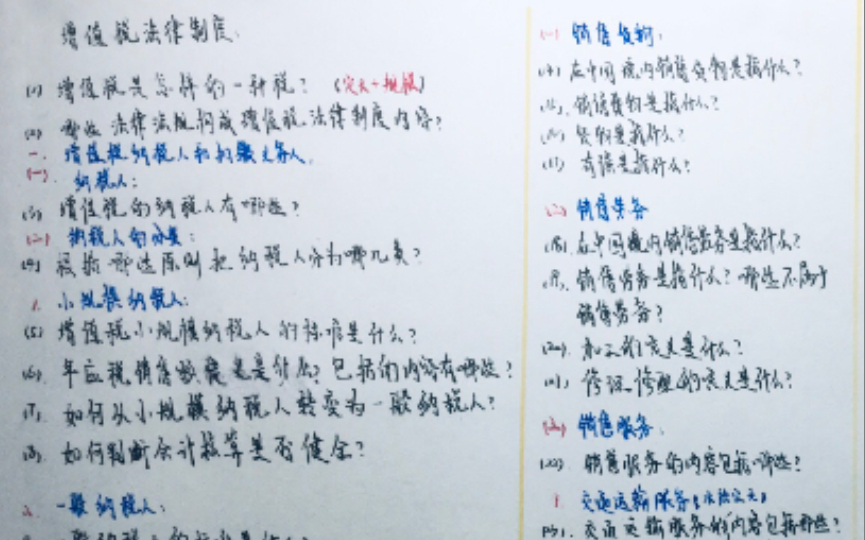 增值税法律制度:
(1) 增值税是怎样的一种税? (定义+规模)
(2) 哪些法律法规构成增值税法律制度内容?
一. 增值税纳税人和扣缴义务人.
(一). 纳税人:
(3) 增值税的纳税人有哪些?
(二) 纳税人的分类:
(4) 按哪些原则把纳税人分为哪几类?
1. 小规模纳税人:
(5) 增值税小规模纳税人的标准是什么?
(6). 年应税销售额是什么? 包括的内容有哪些?
(7). 如何从小规模纳税人转变为一般纳税人?
(8). 如何判断会计核算是否健全?
2. 一般纳税人:
(一) 销售货物:
在中国境内销售货物是指什么?
销售货物是指什么?
货物是指什么?
(17) 有偿是指什么?
(二) 销售劳务
(18). 在中国境内销售劳务是指什么?
(19). 销售劳务是指什么? 哪些不属于
销售劳务?
(20). 加工的定义是什么?
(21). 修理修配的定义是什么?
(三) 销售服务.
(22). 销售服务的内容包括哪些?
1. 交通运输服务
(23). 交通运输服务的内容包括哪些?